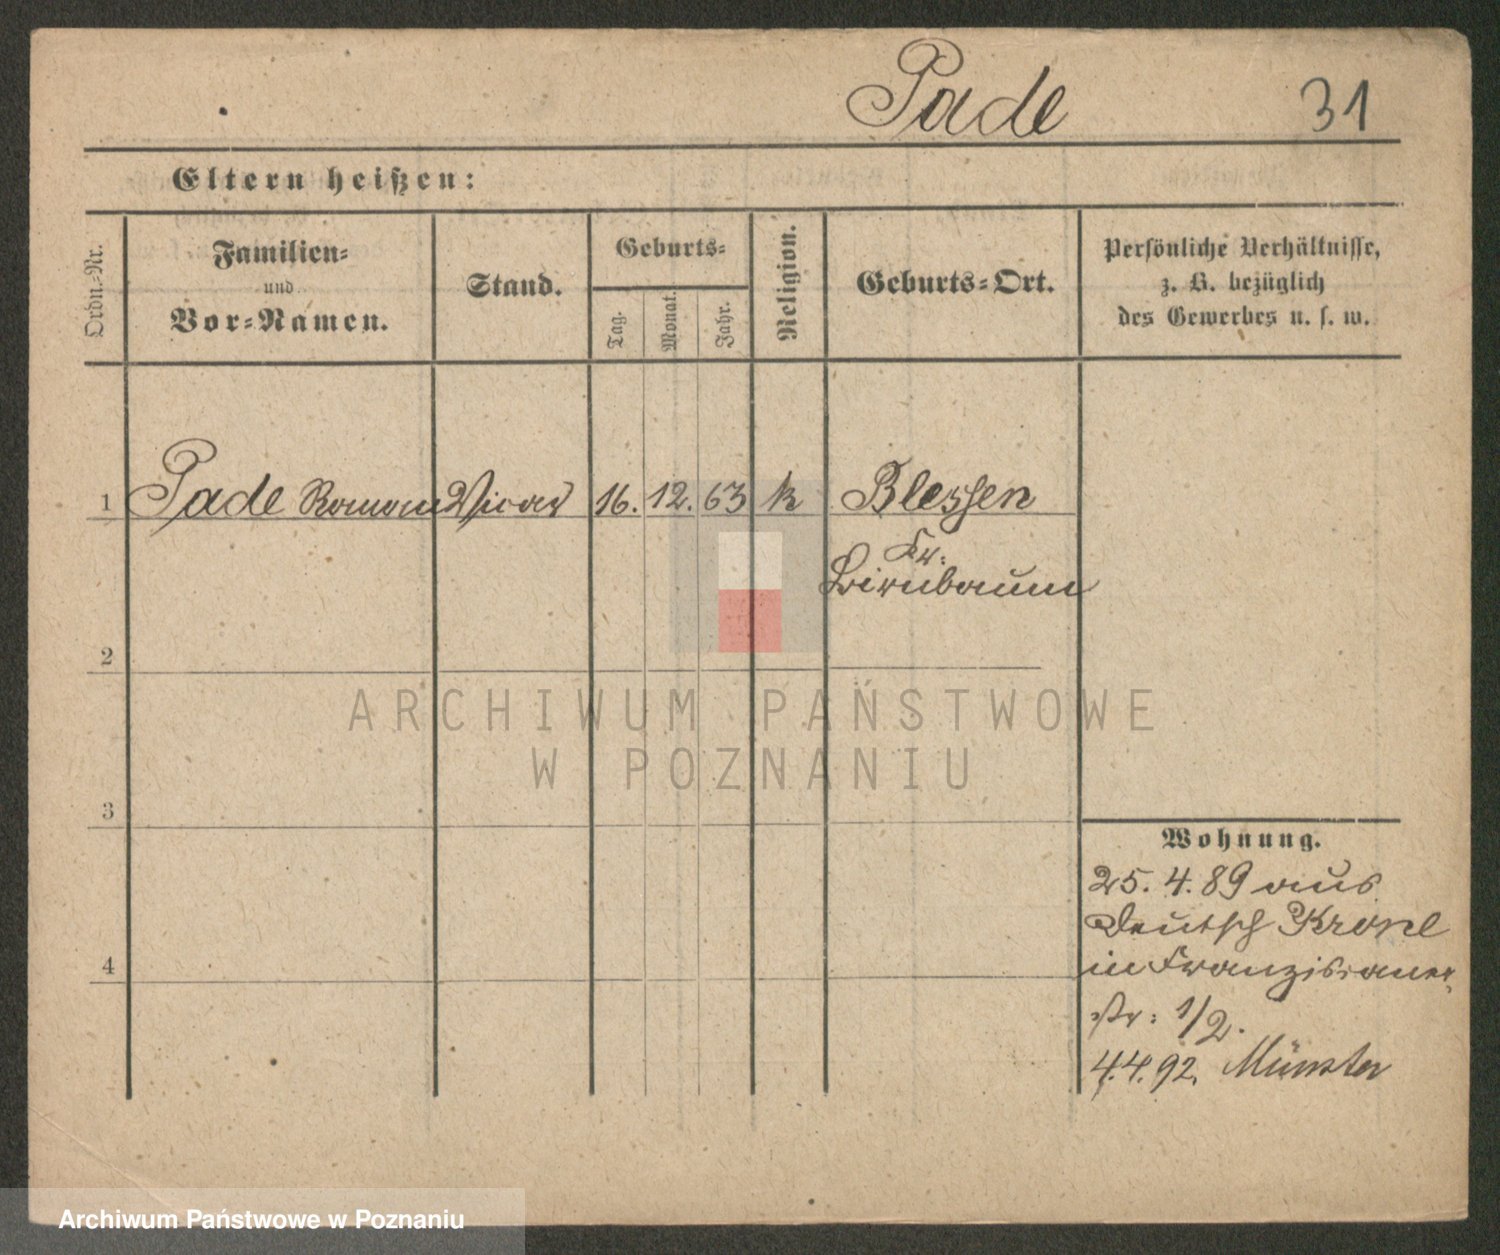 Pade 31
Eltern heißen:
Ordn.-Nr.
Familien-
und
Vor-Namen.
Stand.
Geburts-
Tag.
Monat.
Jahr.
Religion.
Geburts-Ort.
Persönliche Verhältnisse,
z. B. bezüglich
des Gewerbes u. s. w.
1 Pade Roman Vicar 16. 12. 63 k Blessen
Kr.
Birnbaum
2
ARCHIWUM PAŃSTWOWE
W POZNANIU
3
Wohnung.
25. 4. 89 aus
Deutsch Krone
in Franziskaner
str: 1/2.
4
4.4.92. Münster
Archiwum Państwowe w Poznaniu